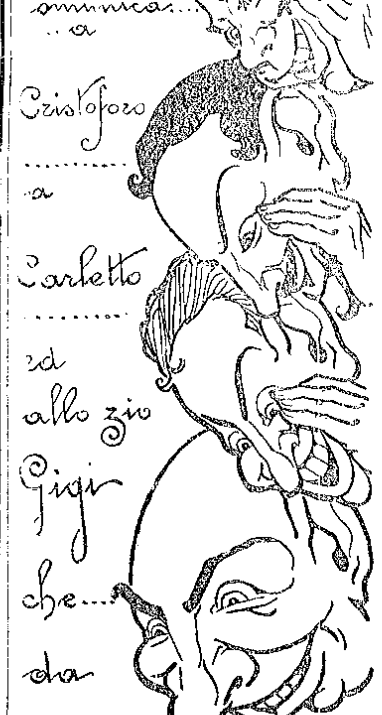 omunica...
..a
Cristoforo
..............
a
Carletto
..............
ed
allo zio
Gigi
che....
da